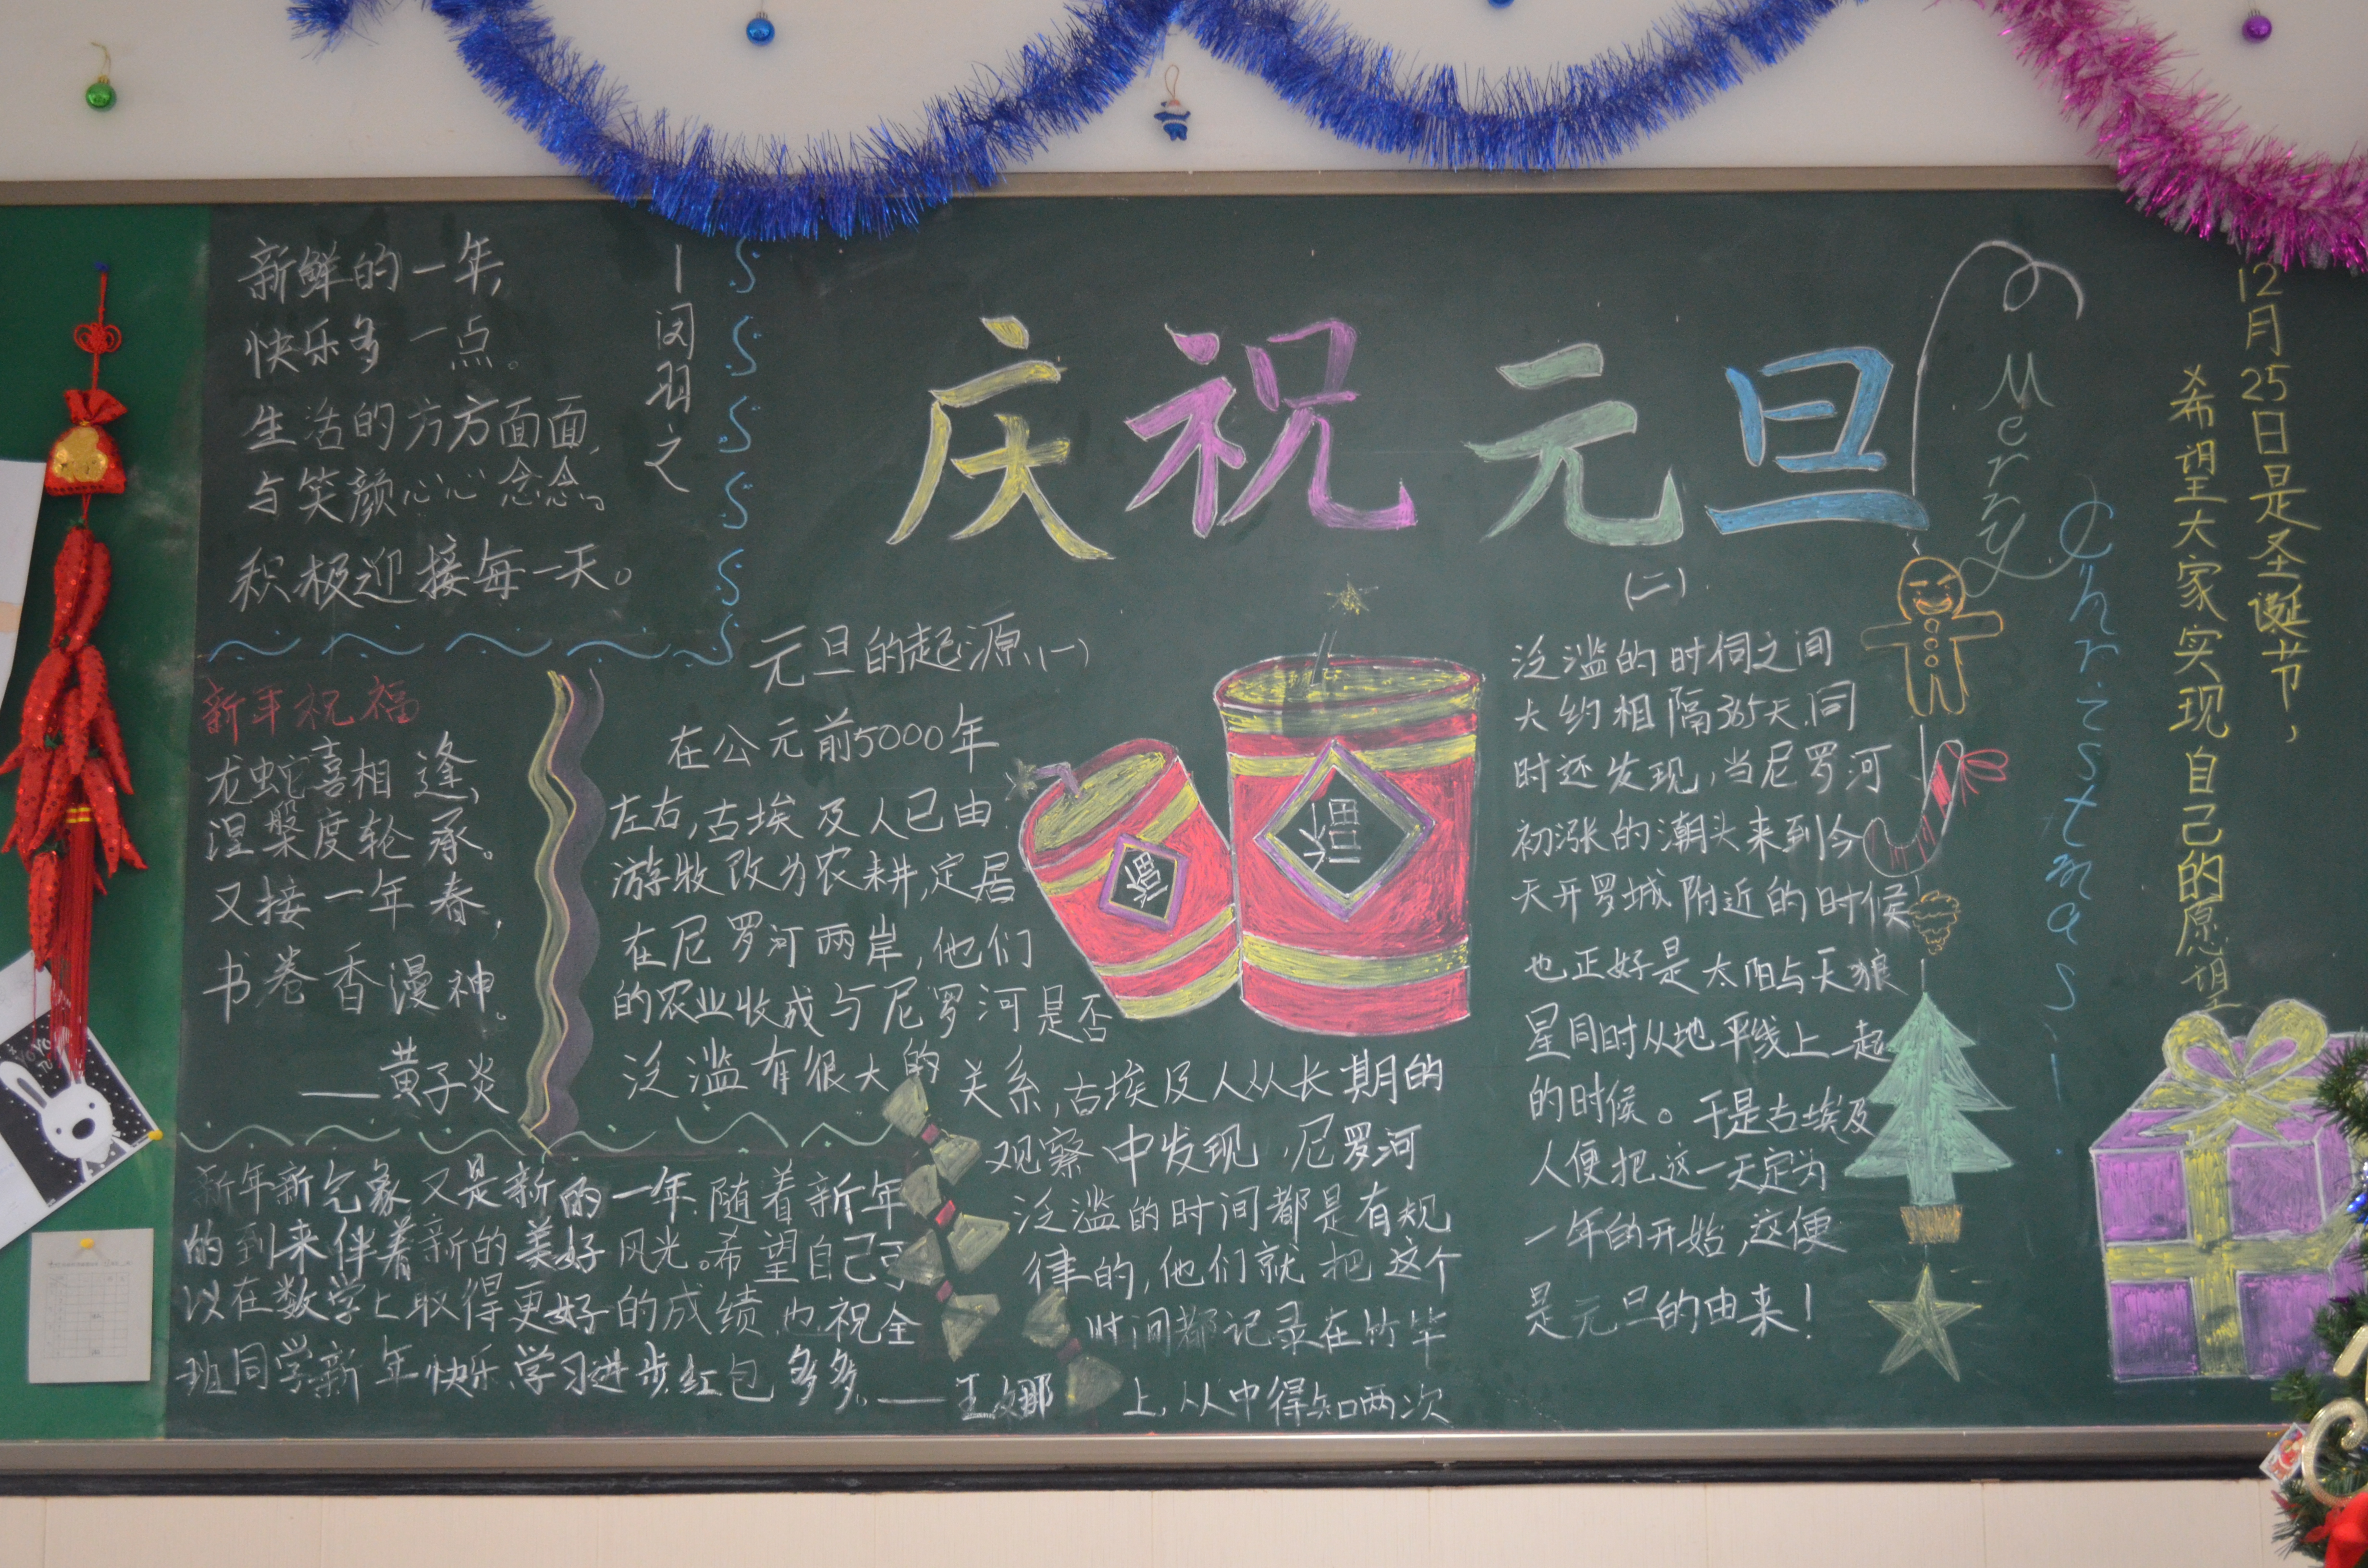 庆祝元旦
新鲜的一年,
快乐多一点。
生活的方方面面,
与笑颜心心念念。
积极迎接每一天。
闵羽之
新年祝福
龙蛇喜相逢,
涅槃度轮承。
又接一年春,
书卷香漫神。
——黄子炎
新年新气象又是新的一年.随着新年
的到来伴着新的美好风光。希望自己可
以在数学上取得更好的成绩.也祝全
班同学新年快乐.学习进步.红包多多。——王娜
元旦的起源(一)
在公元前5000年
左右,古埃及人已由
游牧改为农耕,定居
在尼罗河两岸,他们
的农业收成与尼罗河是否
泛滥有很大的关系,古埃及人从长期的
观察中发现,尼罗河
泛滥的时间都是有规
律的,他们就把这个
时间都记录在竹竿
上,从中得知两次
(二)
泛滥的时间之间
大约相隔365天.同
时还发现,当尼罗河
初涨的潮头来到今
天开罗城附近的时候
也正好是太阳与天狼
星同时从地平线上一起
的时候。于是古埃及
人便把这一天定为
一年的开始,这便
是元旦的由来!
Merry
Christmas!
12月25日是圣诞节,
希望大家实现自己的愿望
福